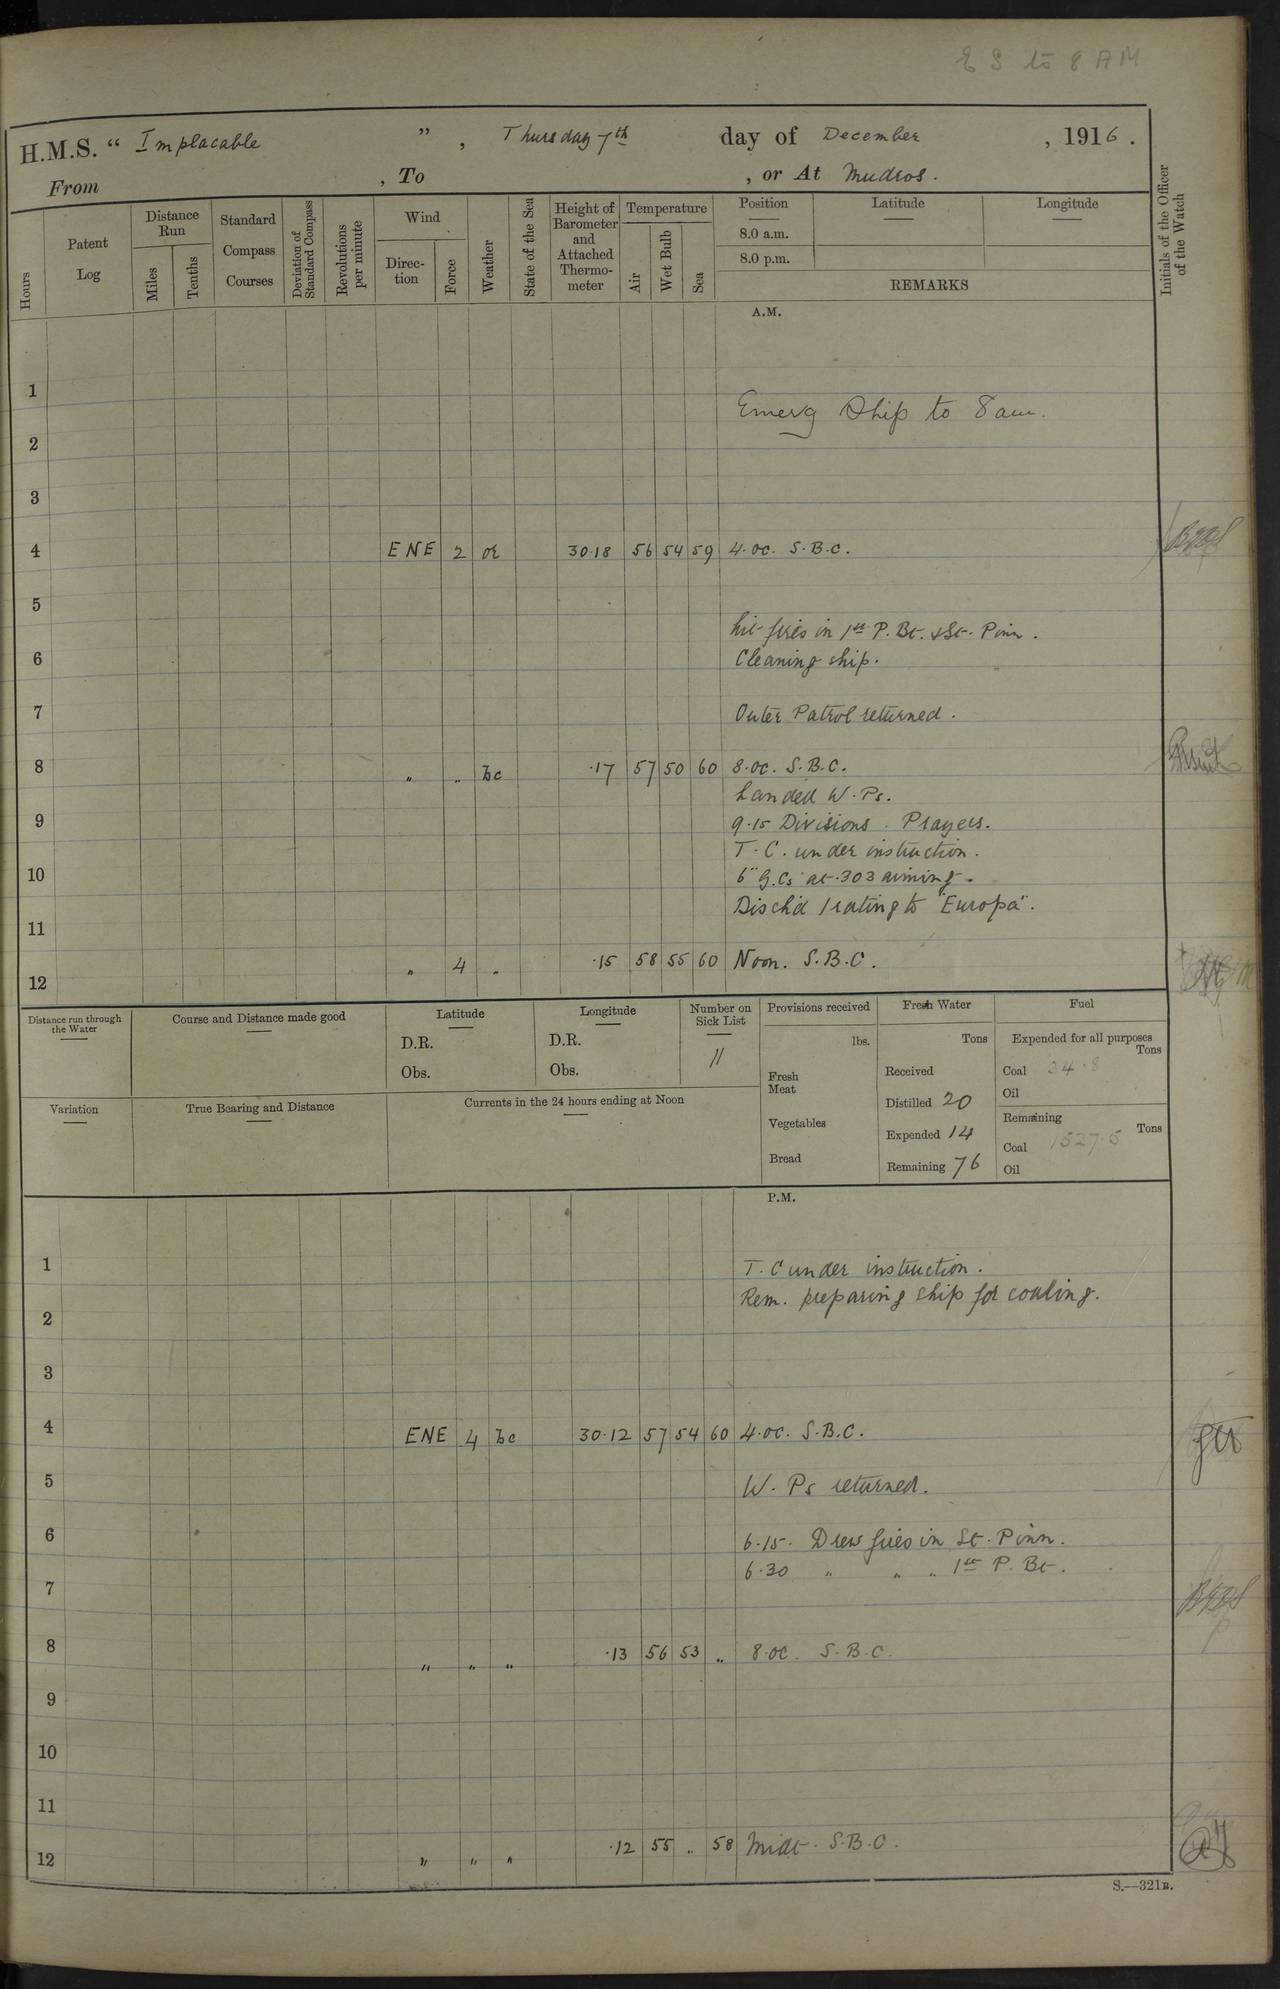 E S to 8 AM
H.M.S. “ Implacable ” , Thursday 7th day of December , 1916 .
From , To , or At Mudros .
Hours
Patent Log
Distance Run
Miles
Tenths
Standard Compass Courses
Deviation of Standard Compass
Revolutions per minute
Wind
Direction
Force
Weather
State of the Sea
Height of Barometer and Attached Thermometer
Temperature
Air
Wet Bulb
Sea
Position Latitude Longitude
8.0 a.m.
8.0 p.m.
REMARKS
Initials of the Officer of the Watch
A.M.
1
Emerg Ship to 8 am.
2
3
4 ENE 2 or 30.18 56 54 59 4.oc. S.B.C.
5
Lit fires in 1st P. Bt. & St. Pinn.
6 Cleaning ship.
7 Outer Patrol returned.
8 " " bc .17 57 50 60 8.oc. S.B.C.
Landed W.Ps.
9 9.15 Divisions. Prayers.
T.C. under instruction.
10 6" G.Cs at .303 aiming.
Disch'd 1 rating to "Europa".
11
12 " 4 " .15 58 55 60 Noon. S.B.C.
Distance run through the Water
Course and Distance made good
Latitude
D.R.
Obs.
Longitude
D.R.
Obs.
Number on Sick List
11
Provisions received
lbs.
Fresh Meat
Vegetables
Bread
Fresh Water
Tons
Received
Distilled 20
Expended 14
Remaining 76
Fuel
Expended for all purposes
Tons
Coal 34.8
Oil
Remaining
Tons
Coal 1527.5
Oil
Variation
True Bearing and Distance
Currents in the 24 hours ending at Noon
P.M.
1 T.C under instruction.
Rem. preparing ship for coaling.
2
3
4 ENE 4 bc 30.12 57 54 60 4.oc. S.B.C.
5 W. Ps returned.
6 6.15. Drew fires in St. Pinn.
6.30 " " " 1st P. Bt.
7
8 " " " .13 56 53 " 8.oc. S.B.C.
9
10
11
12 " " " .12 55 " 58 Midt. S.B.C.
S.—321B.